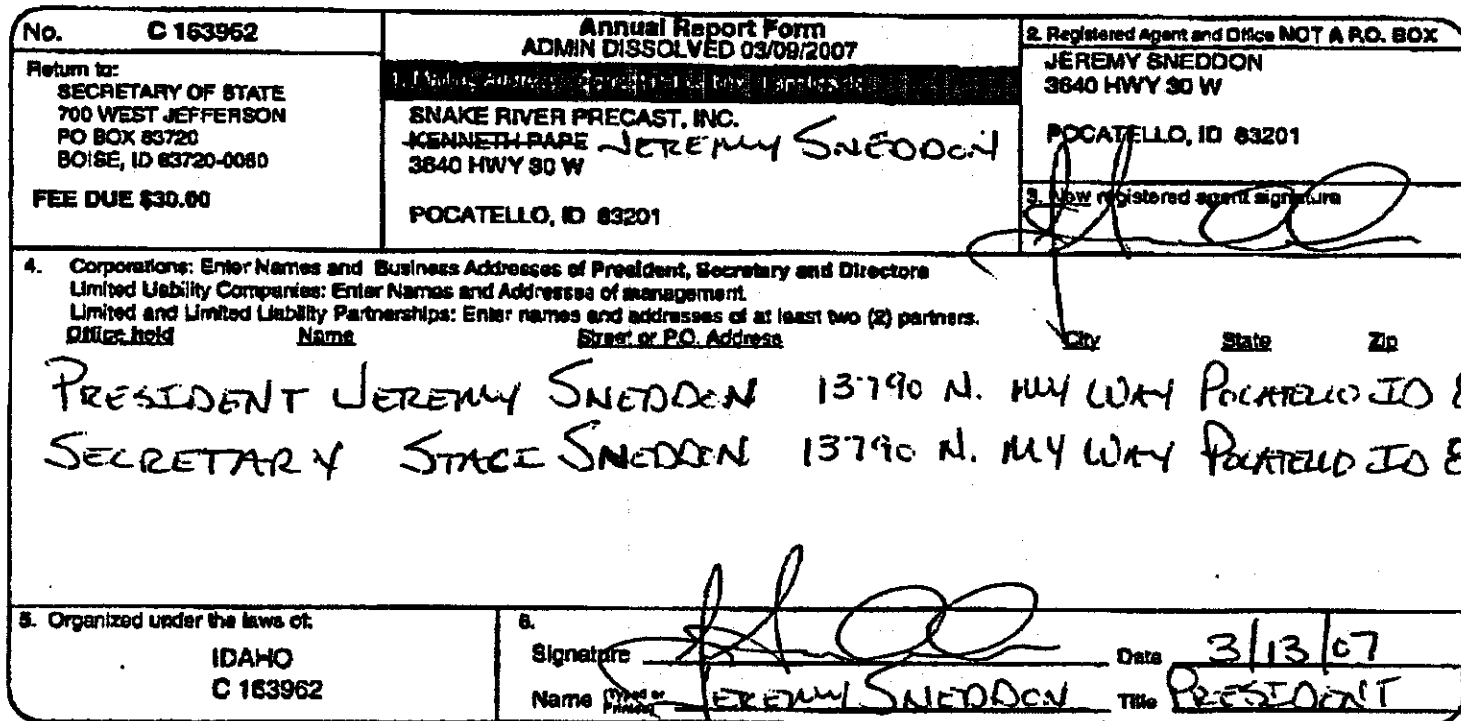 No. C 163962
Annual Report Form
ADMIN DISSOLVED 03/09/2007
Return to:
SECRETARY OF STATE
700 WEST JEFFERSON
PO BOX 83720
BOISE, ID 83720-0080
FEE DUE $30.00
SNAKE RIVER PRECAST, INC.
KENNETH PAPE JEREMY SNEDDON
3640 HWY 30 W
POCATELLO, ID 83201
2. Registered Agent and Office NOT A P.O. BOX
JEREMY SNEDDON
3640 HWY 30 W
POCATELLO, ID 83201
3. New registered agent signature
4. Corporations: Enter Names and Business Addresses of President, Secretary and Directors
Limited Liability Companies: Enter Names and Addresses of management.
Limited and Limited Liability Partnerships: Enter names and addresses of at least two (2) partners.
Office held Name Street or P.O. Address City State Zip
PRESIDENT JEREMY SNEDDON 13790 N. MY WAY POCATELLO ID 8
SECRETARY STACI SNEDDON 13790 N. MY WAY POCATELLO ID 8
5. Organized under the laws of:
IDAHO
C 163962
6.
Signature Date 3/13/07
Name (Typed or Printed) JEREMY SNEDDON Title PRESIDENT